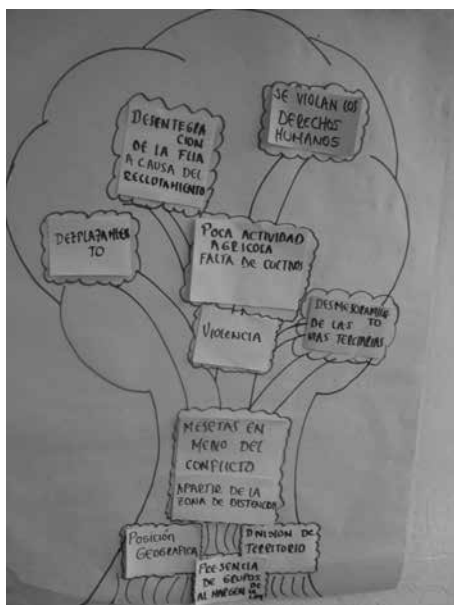 SE VIOLAN LOS
DERECHOS
HUMANOS
DESENTEGRA
CION
DE LA FLIA
A CAUSA DEL
RECLOTAMIENTO
DEZPLAZAMIEN
TO
POCA ACTIVIDAD
AGRICOLA
FALTA DE CULTIVOS
VIOLENCIA
DESMEJORAMIEN
TO
DE LAS
VIAS TERCIARIAS
MESETAS EN
MEDIO DEL
CONFLICTO
APARTIR DE LA
ZONA DE DISTENCION
POSICIÓN
GEOGRAFICA
DIVISION DE
TERRITORIO
PRESENCIA
DE GRUPOS
AL MARGEN DE
LA LEY